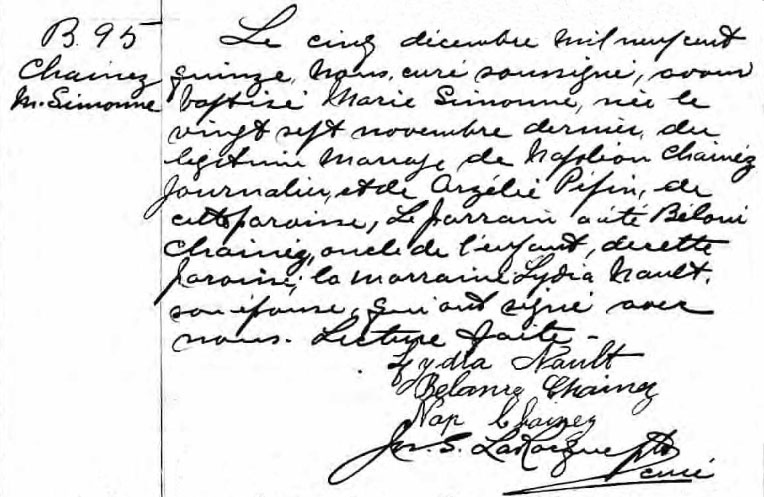 B. 95
Chainez
M. Simonne
Le cinq décembre mil neuf cent
quinze, nous, curé soussigné, avons
baptisé Marie Simonne, née le
vingt sept novembre dernier, du
légitime mariage de Napoléon Chainéz
journalier, et de Orzélie Pépin, de
cette paroisse, Le parrain a été Béloni
Chainéz, oncle de l'enfant, de cette
paroisse; la marraine Lydia Nault,
son épouse, qui ont signé avec
nous. Lecture faite -
Lydia Nault
Chainez
Nap Chainez
Jos. S. LaRocque ptre
curé